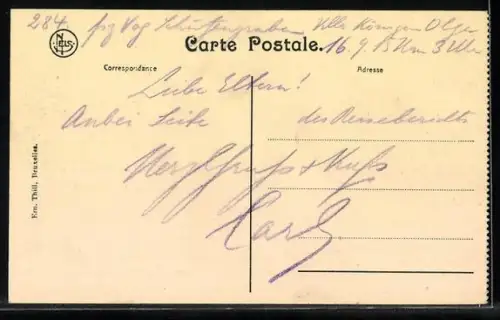 284. Schützengraben Villa Königin Olga
NELS
Carte Postale. 16.9.15 Um 3 Uhr
Correspondance Adresse
Liebe Eltern!
Anbei Seite des Reiseberichts
Herzl Gruß + Kuß
Karl
Ern. Thill, Bruxelles.